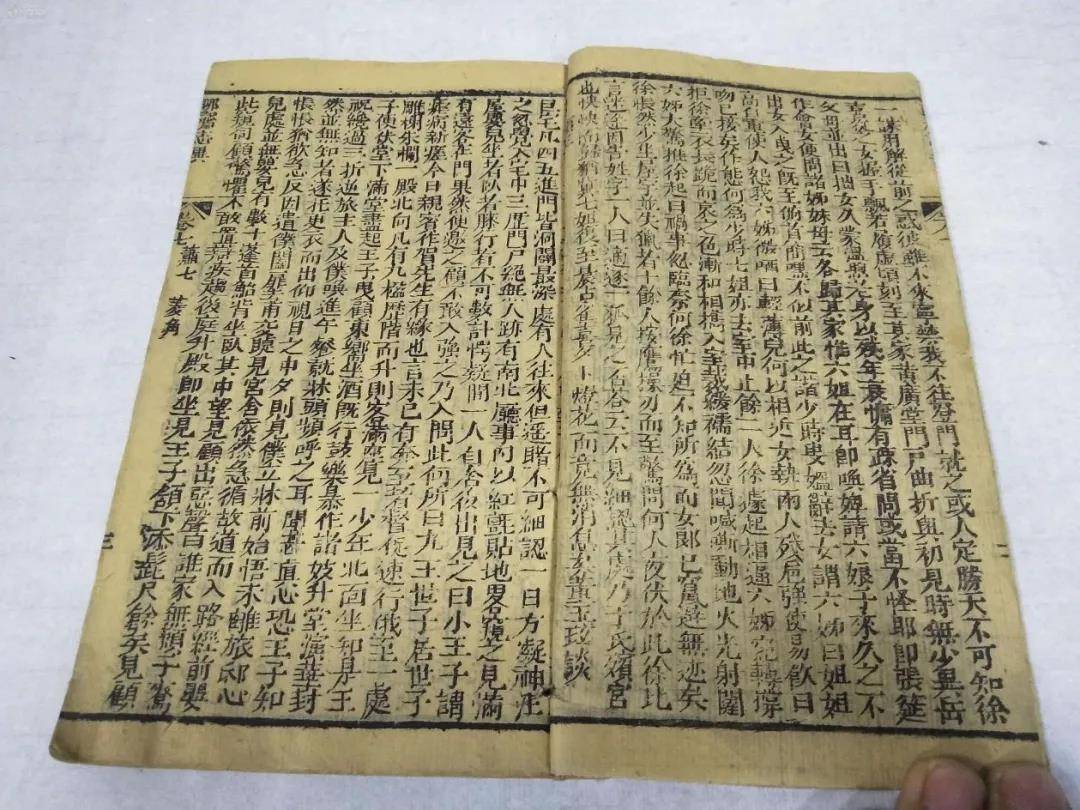 用解從前之惑彼雖不來寧禁我不往登門就之或人定勝天不可知徐
喜從之女握手飄若履虛頃刻至其家黃廣堂門戸曲折與初見時無少異岳
父母並出曰拙女久蒙溫煦老身以殘年衰慵有疎省問或當不怪耶即張筵
作會女便問諸姊妹母云各歸其家惟六姐在耳即喚婢請六娘子來久之不
出女入曳之既至俯首簡嘿不似前此之諧少時叟媼辭去女謂六姊曰姐姐
高自重使人怨我六姊微哂曰輕薄兒何以相近女執兩人殘卮強使易飲曰
吻已接矣作態何為少時七姐亦去室中止餘二人徐遽起相逼六姊宛轉撐
拒徐牽衣長跪而哀之色漸和相攜入室裁緩襦結忽聞喊嘶動地火光射闥
六姊大驚推徐起曰禍事忽臨奈何徐忙迫不知所為而女郎已竄避無迹矣
徐悵然少坐屋宇並失獵者十餘人按鷹操刃而至驚問何人夜伏於此徐托
言迷途因告姓字一人曰適逐一狐見之否答云不見細認其處乃于氏殯宮
也怏怏而歸猶冀七姊復至晨占雀喜夕卜燈花而竟無消息矣董玉玹談
巨宅凡四五進門皆洞闢最深處有人往來但遙睹不可細認一日方凝神注
之忽覺入宅中三座門戸絕無人跡有南北廳事內以紅氈貼地畧窺之見滿
屋嬰兒坐者臥者膝行者不可數計愕疑間一人自舍後出見之曰小王子謂
有遠客在門果然便邀之顧不敢入強之乃入問此何所曰九王世子居世子
瘧病新瘥今日親賓作賀先生有緣也言未已有奔至者督促速行俄至一處
雕榭朱欄一殿北向凡有九楹歷階而升則客滿座見一少年北面坐知是王
子便伏堂下滿堂盡起王子曳顧東鄉坐酒既行鼓樂暴作諸妓升堂演華封
祝纔過三折逆旅主人及僕喚進午餐就牀頭頻呼之耳聞甚真心恐王子知
然並無知者遂托更衣而出仰視日之中夕則見僕立牀前始悟未離旅邸心
悵悵猶欲急反因遣僕闔扉去甫交睫見宮舍依然急循故道而入路經前嬰
兒處並無嬰兒有數十蓬首鮐背坐臥其中望見顧出惡聲曰誰家無賴子驚
此窺伺顧驚懼不敢置辨疾趨後庭升殿即坐見王子頷下添髭尺餘矣見顧
聊齋志異 卷七 蕭七 菱角 三